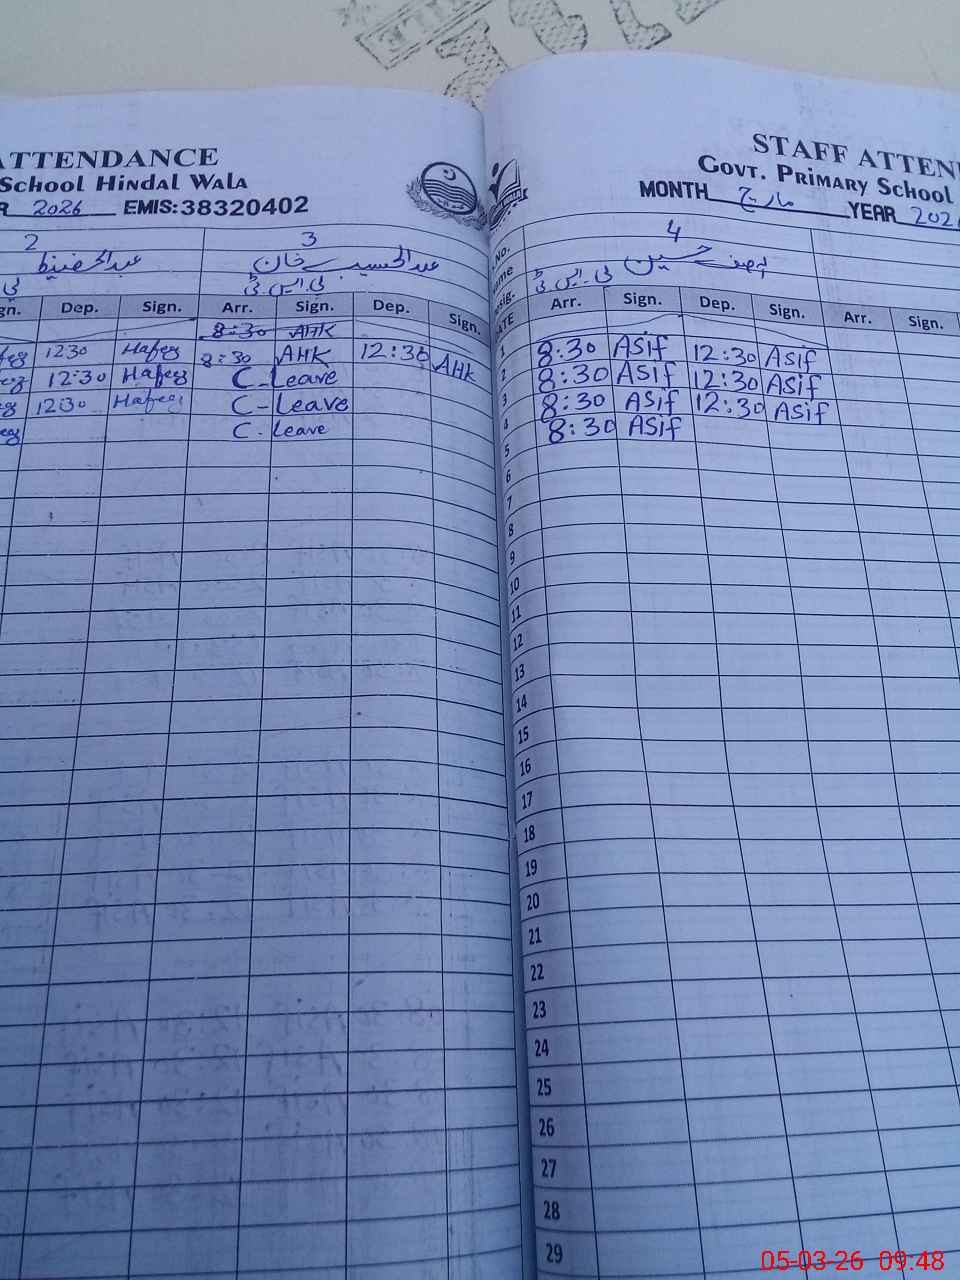 ATTENDANCE
School Hindal Wala
2026 EMIS:38320402
2 3
عبدالحفیظ عبدالحسیب خان
پی ایس ٹی
Dep. Sign. Arr. Sign. Dep. Sign.
8:30 AHK
1230 Hafeez 8:30 AHK 12:30 AHK
12:30 Hafeez C-Leave
1230 Hafeez C-Leave
C. Leave
STAFF ATTEN
Govt. Primary School
MONTH مارچ YEAR 2026
No. 4
آصف حسین
پی ایس ٹی
DATE Arr. Sign. Dep. Sign. Arr. Sign.
1
2 8:30 ASif 12:30 ASif
3 8:30 ASif 12:30 ASif
4 8:30 ASif 12:30 ASif
5 8:30 ASif
6
7
8
9
10
11
12
13
14
15
16
17
18
19
20
21
22
23
24
25
26
27
28
29
05-03-26 09:48